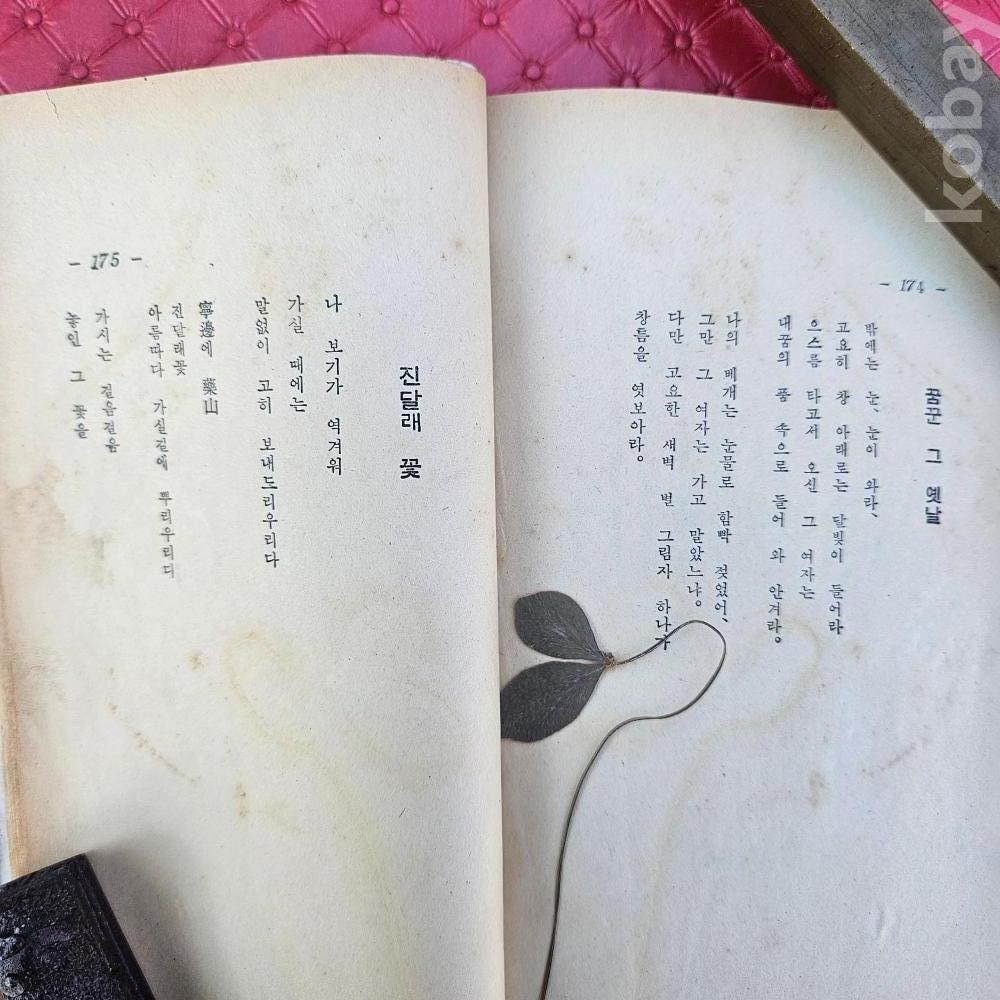 꿈꾼 그 옛날
밖에는 눈、눈이 와라、
고요히 창 아래로는 달빛이 들어라
으스름 타고서 오신 그 여자는
내꿈의 품 속으로 들어 와 안겨라。
나의 베개는 눈물로 함빡 젖었어、
그만 그 여자는 가고 말았느냐。
다만 고요한 새벽 별 그림자 하나가
창틈을 엿보아라。
- 174 -
진달래 꽃
나 보기가 역겨워
가실 때에는
말없이 고히 보내드리우리다
寧邊에 藥山
진달래꽃
아름따다 가실길에 뿌리우리다
가시는 걸음걸음
놓인 그 꽃을
- 175 -
kobay